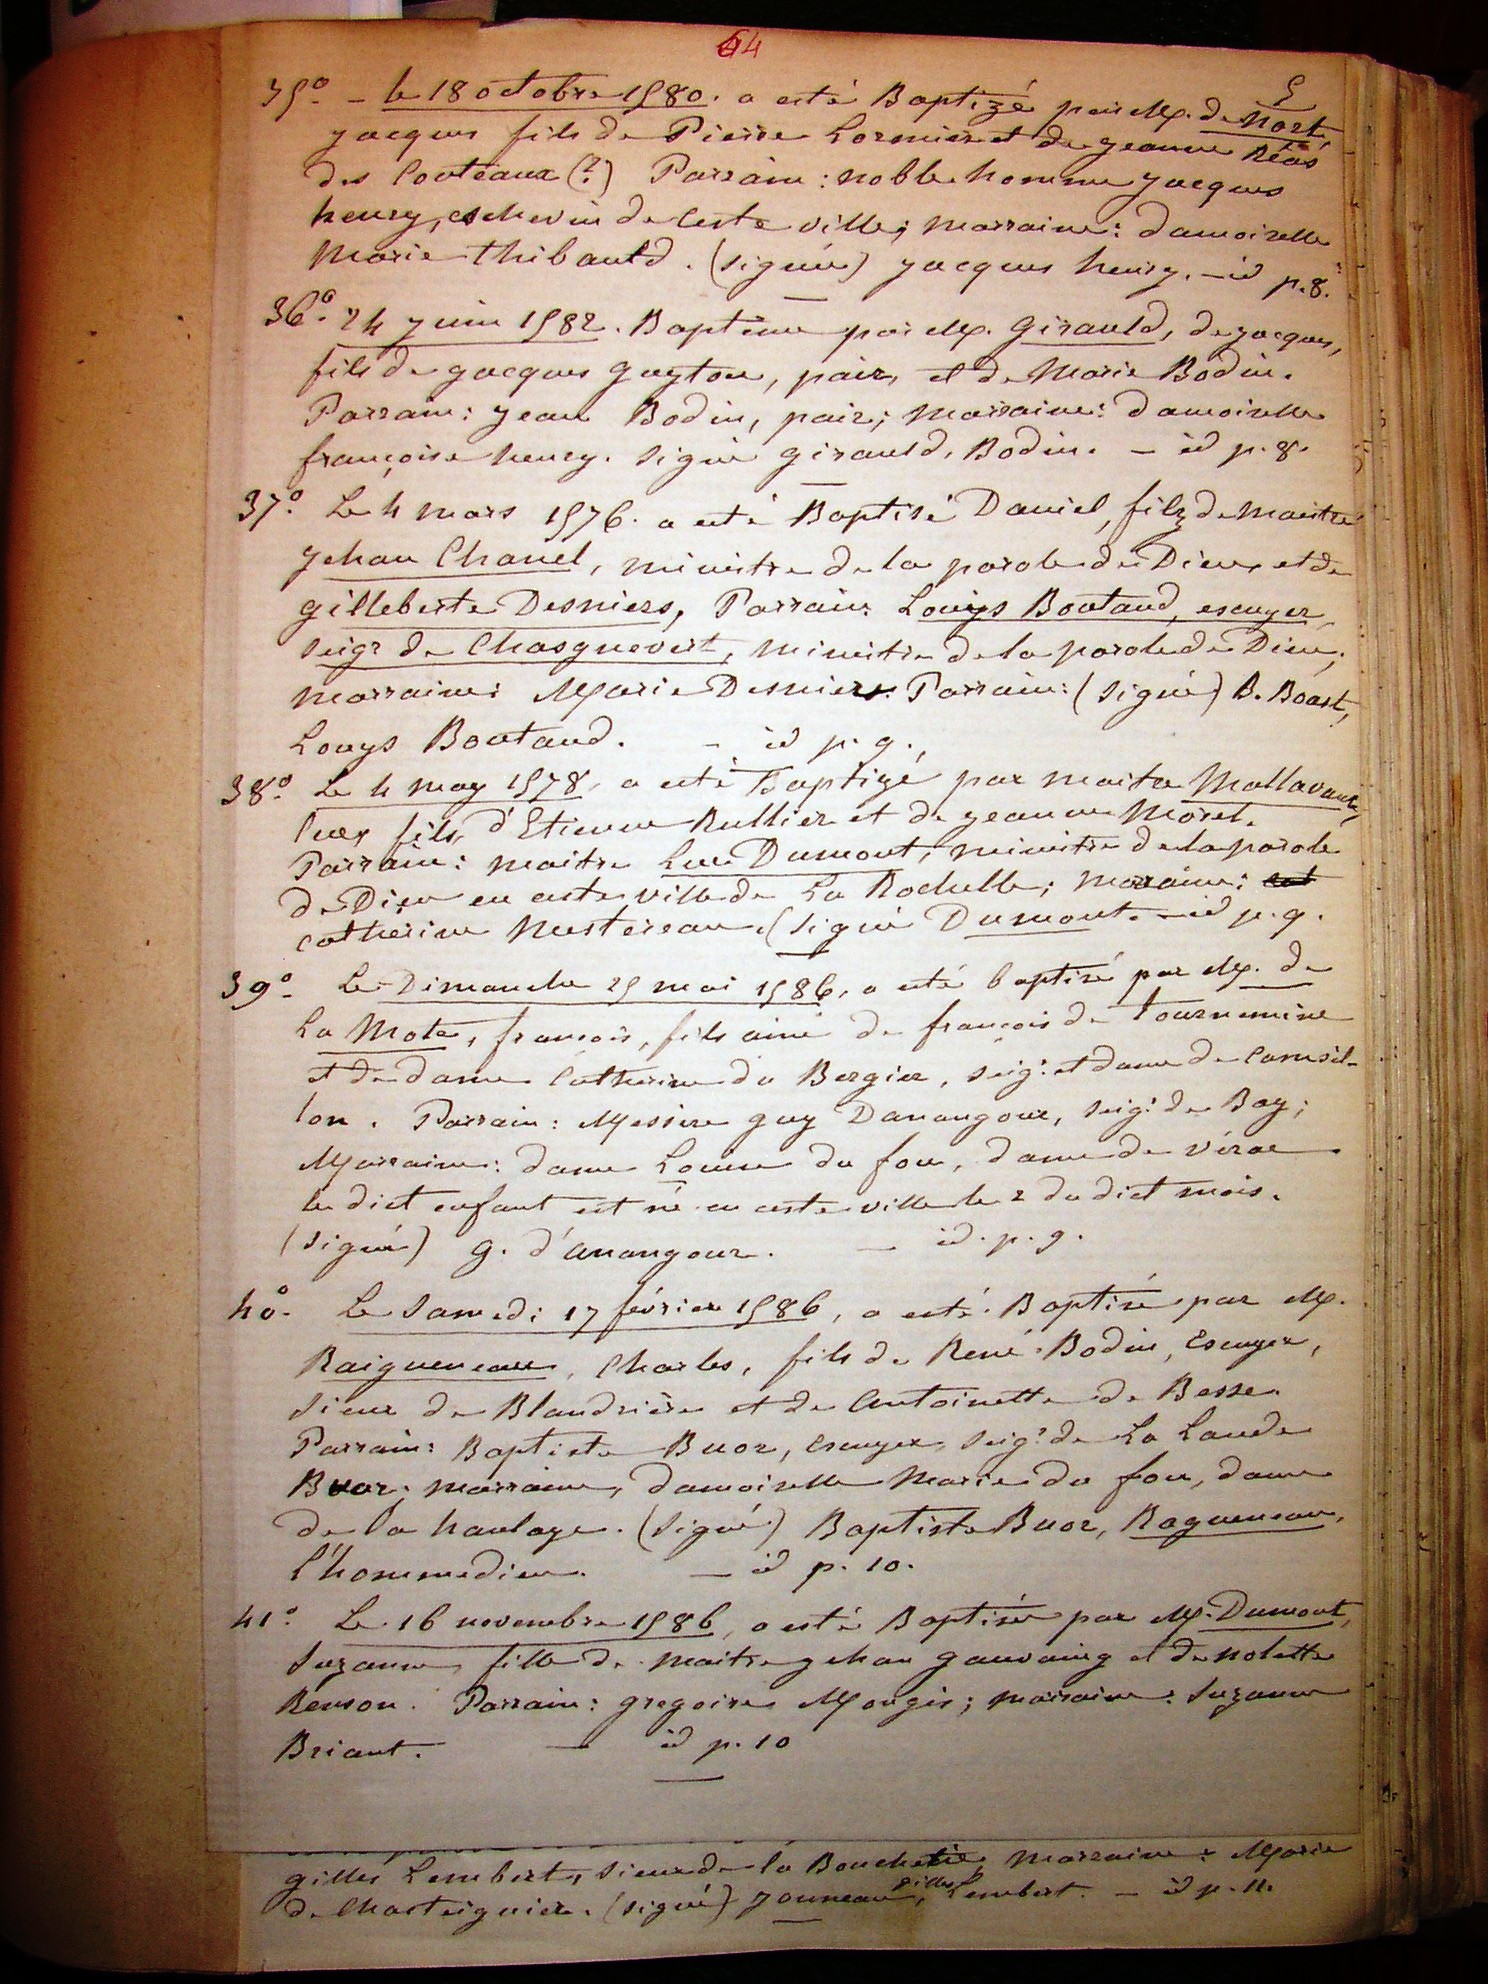 64
5
35° - le 18 octobre 1580. a esté Baptizé par M. de Nort,
Jacques fils de Pierre Lormier et de Jeanne Réas
des Couteaux (?) Parrain : noble homme Jacques
henry, eschevin de ceste ville; marraine: damoiselle
Marie Thibauld. (signé) Jacques henry. - id p. 8.
36° 24 Juin 1582. Baptême par M. Girauld, de Jacques,
fils de Jacques Guyton, pair, et de Marie Bodin.
Parrain: Jean Bodin, pair; marraine: damoiselle
françoise henry. Signé Girauld, Bodin. - id p. 8.
37° Le 4 mars 1576. a esté Baptisé Daniel, filz de maitre
Jehan Chanel, ministre de la parole de Dieu et de
Gilleberte Desniers, Parrain: Louys Boutaud, escuyer
seigr de Chasgnevert, ministre de la parole de Dieu,
marraine: Marie Desniers. Parrain: (signé) B. Boast,
Louys Boutaud. - id p. 9.,
38° Le 4 may 1578, a esté Baptizé par maitre Mallavaux,
Luc, fils d'Etienne Rullier et de Jeanne Morel.
Parrain: maitre Luc Dumont, ministre de la parole
de Dieu en ceste ville de La Rochelle; maraine: cat
Catherine Mestereau. (Signé Dumont. - id p. 9.
39° - Le Dimanche 25 mai 1586, a esté baptisé par M. de
La Mote, françois, fils ainé de françois de Tournemine
et de dame Catherine du Bergier, seigr et dame de Camsil-
lon. Parrain: Messire Guy Danangour, seigr de Boy;
Marraine: dame Louise du fou, dame de Vérac
le dict enfant est né en ceste ville le 2 du dict mois.
(signé) G. d'Anangour. - id. p. 9.
40° - Le Samedi 17 février 1586, a esté Baptisé par M.
Raigueneau, Charles, fils de René Bodin, Escuyer,
sieur de Blandrière et de Antoinette de Besse.
Parrain: Baptiste Buor, escuyer, seigr de La Lande
Buor. marraine, damoiselle Marie du fou, dame
de la haulaye. (signé) Baptiste Buor, Ragueneau,
l'hommedieu. - id p. 10.
41° Le 16 novembre 1586, a esté Baptisée par M. Dumont,
Suzanne, fille de maitre Jehan Gauvaing et de Nolette
Renson. Parrain: gregoire Mongis; marraine: Suzanne
Briant. - id p. 10
gilles Lembert, sieur de la Boucheterie, marraine : Marie
de Chasteignier. (signé) Jouneau, gilles Lembert. - id p. 11.